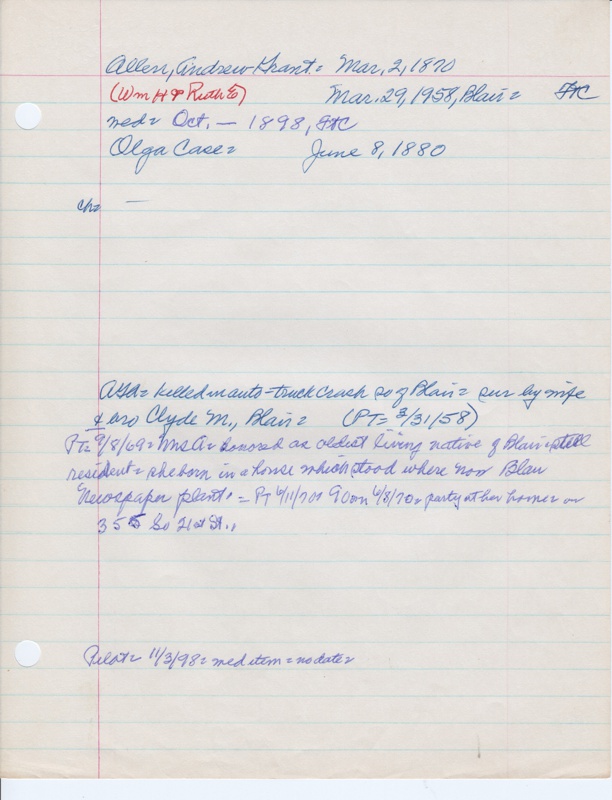 Allen, Andrew Grant = Mar. 2, 1870
(Wm H & Ruth E) Mar. 29, 1958, Blair =
med = Oct. — 1898,
Olga Case = June 8, 1880
ch = —
AGA = killed in auto-truck crash so of Blair = sur by wife
& bro Clyde M., Blair = (PT = 3/31/58)
PT = 9/8/69 = Mrs A = honored as oldest living native of Blair = still
resident = she born in a house which stood where now Blair
Newspaper plant = PT 6/11/70 = 90 on 6/8/70 = party at her home = on
355 So 21st St.,
Pilot = 11/3/98 = med item = no date =